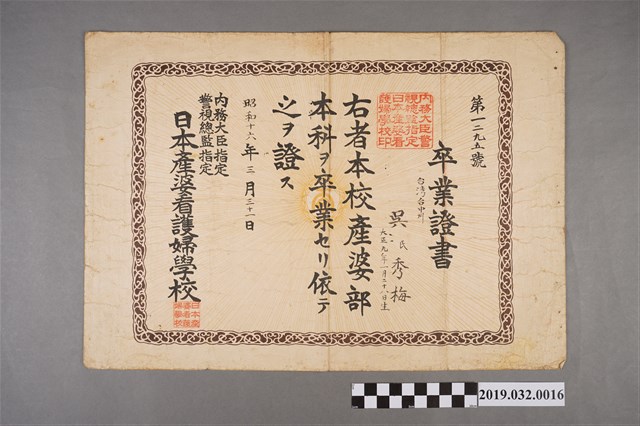 第一二九五號
卒業證書
台灣台中州
呉氏秀梅
大正九年一月二十八日生
內務大臣警
視總監指定
日本產婆看
護婦學校印
右者本校產婆部
本科ヲ卒業セリ依テ
之ヲ證ス
昭和十六年三月三十一日
內務大臣指定
警視總監指定
日本產婆看護婦學校
日本產
婆看護
婦學校
2019.032.0016